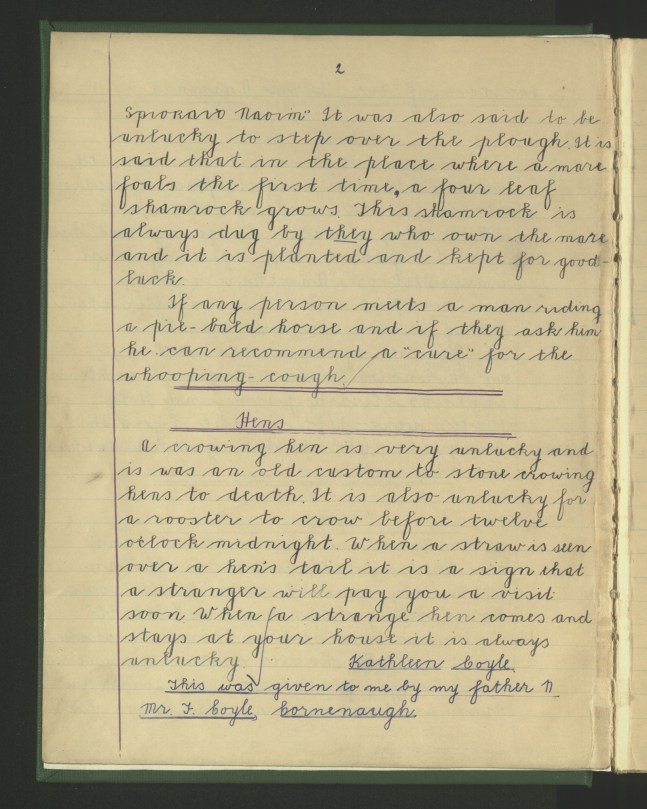 2
Spioraid Naoim" It was also said to be
unlucky to step over the plough. It is
said that in the place where a mare
foals the first time, a four leaf
shamrock grows. This shamrock is
always dug by they who own the mare
and it is planted and kept for good-
luck.
If any person meets a man riding
a pie-bald horse and if they ask him
he can recommend a "cure" for the
whooping-cough.
Hens
A crowing hen is very unlucky and
is was an old custom to stone crowing
hens to death. It is also unlucky for
a rooster to crow before twelve
o'clock midnight. When a straw is seen
over a hen's tail it is a sign that
a stranger will pay you a visit
soon When a strange hen comes and
stays at your house it is always
unlucky.
Kathleen Coyle.
This was given to me by my father
Mr. F. Coyle, Cornenaugh.